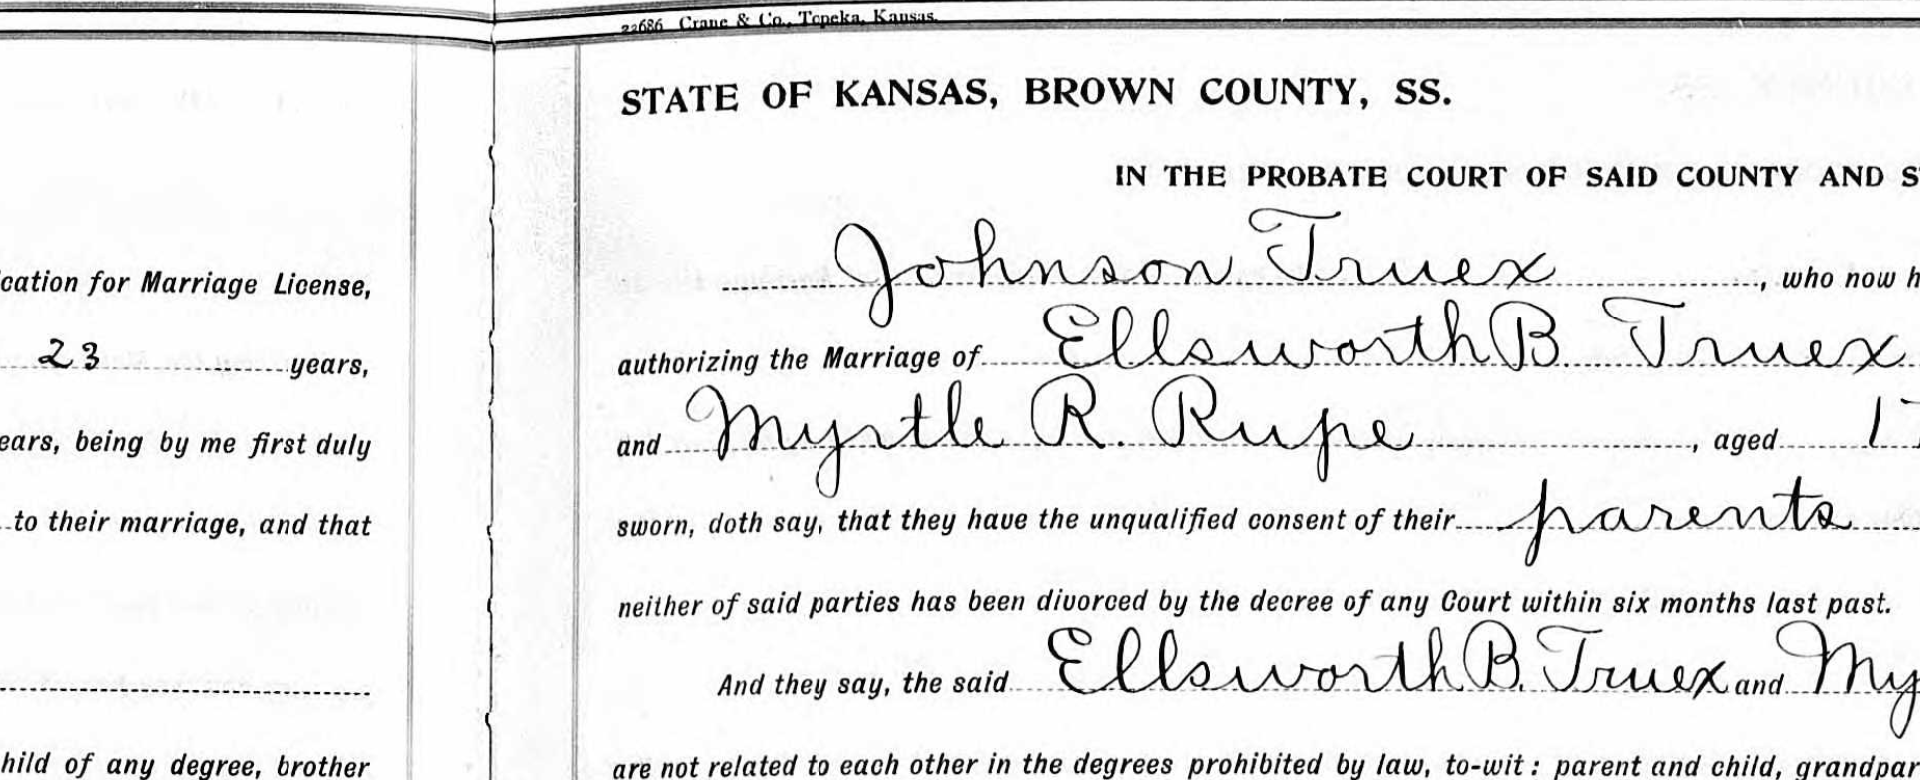 22686 Crane & Co., Topeka, Kansas.
cation for Marriage License,
23 years,
ears, being by me first duly
to their marriage, and that
hild of any degree, brother
STATE OF KANSAS, BROWN COUNTY, SS.
IN THE PROBATE COURT OF SAID COUNTY AND S
Johnson Truex, who now h
authorizing the Marriage of Ellsworth B. Truex
and Myrtle R. Rupe, aged 17
sworn, doth say, that they have the unqualified consent of their parents
neither of said parties has been divorced by the decree of any Court within six months last past.
And they say, the said Ellsworth B. Truex and My
are not related to each other in the degrees prohibited by law, to-wit: parent and child, grandpar